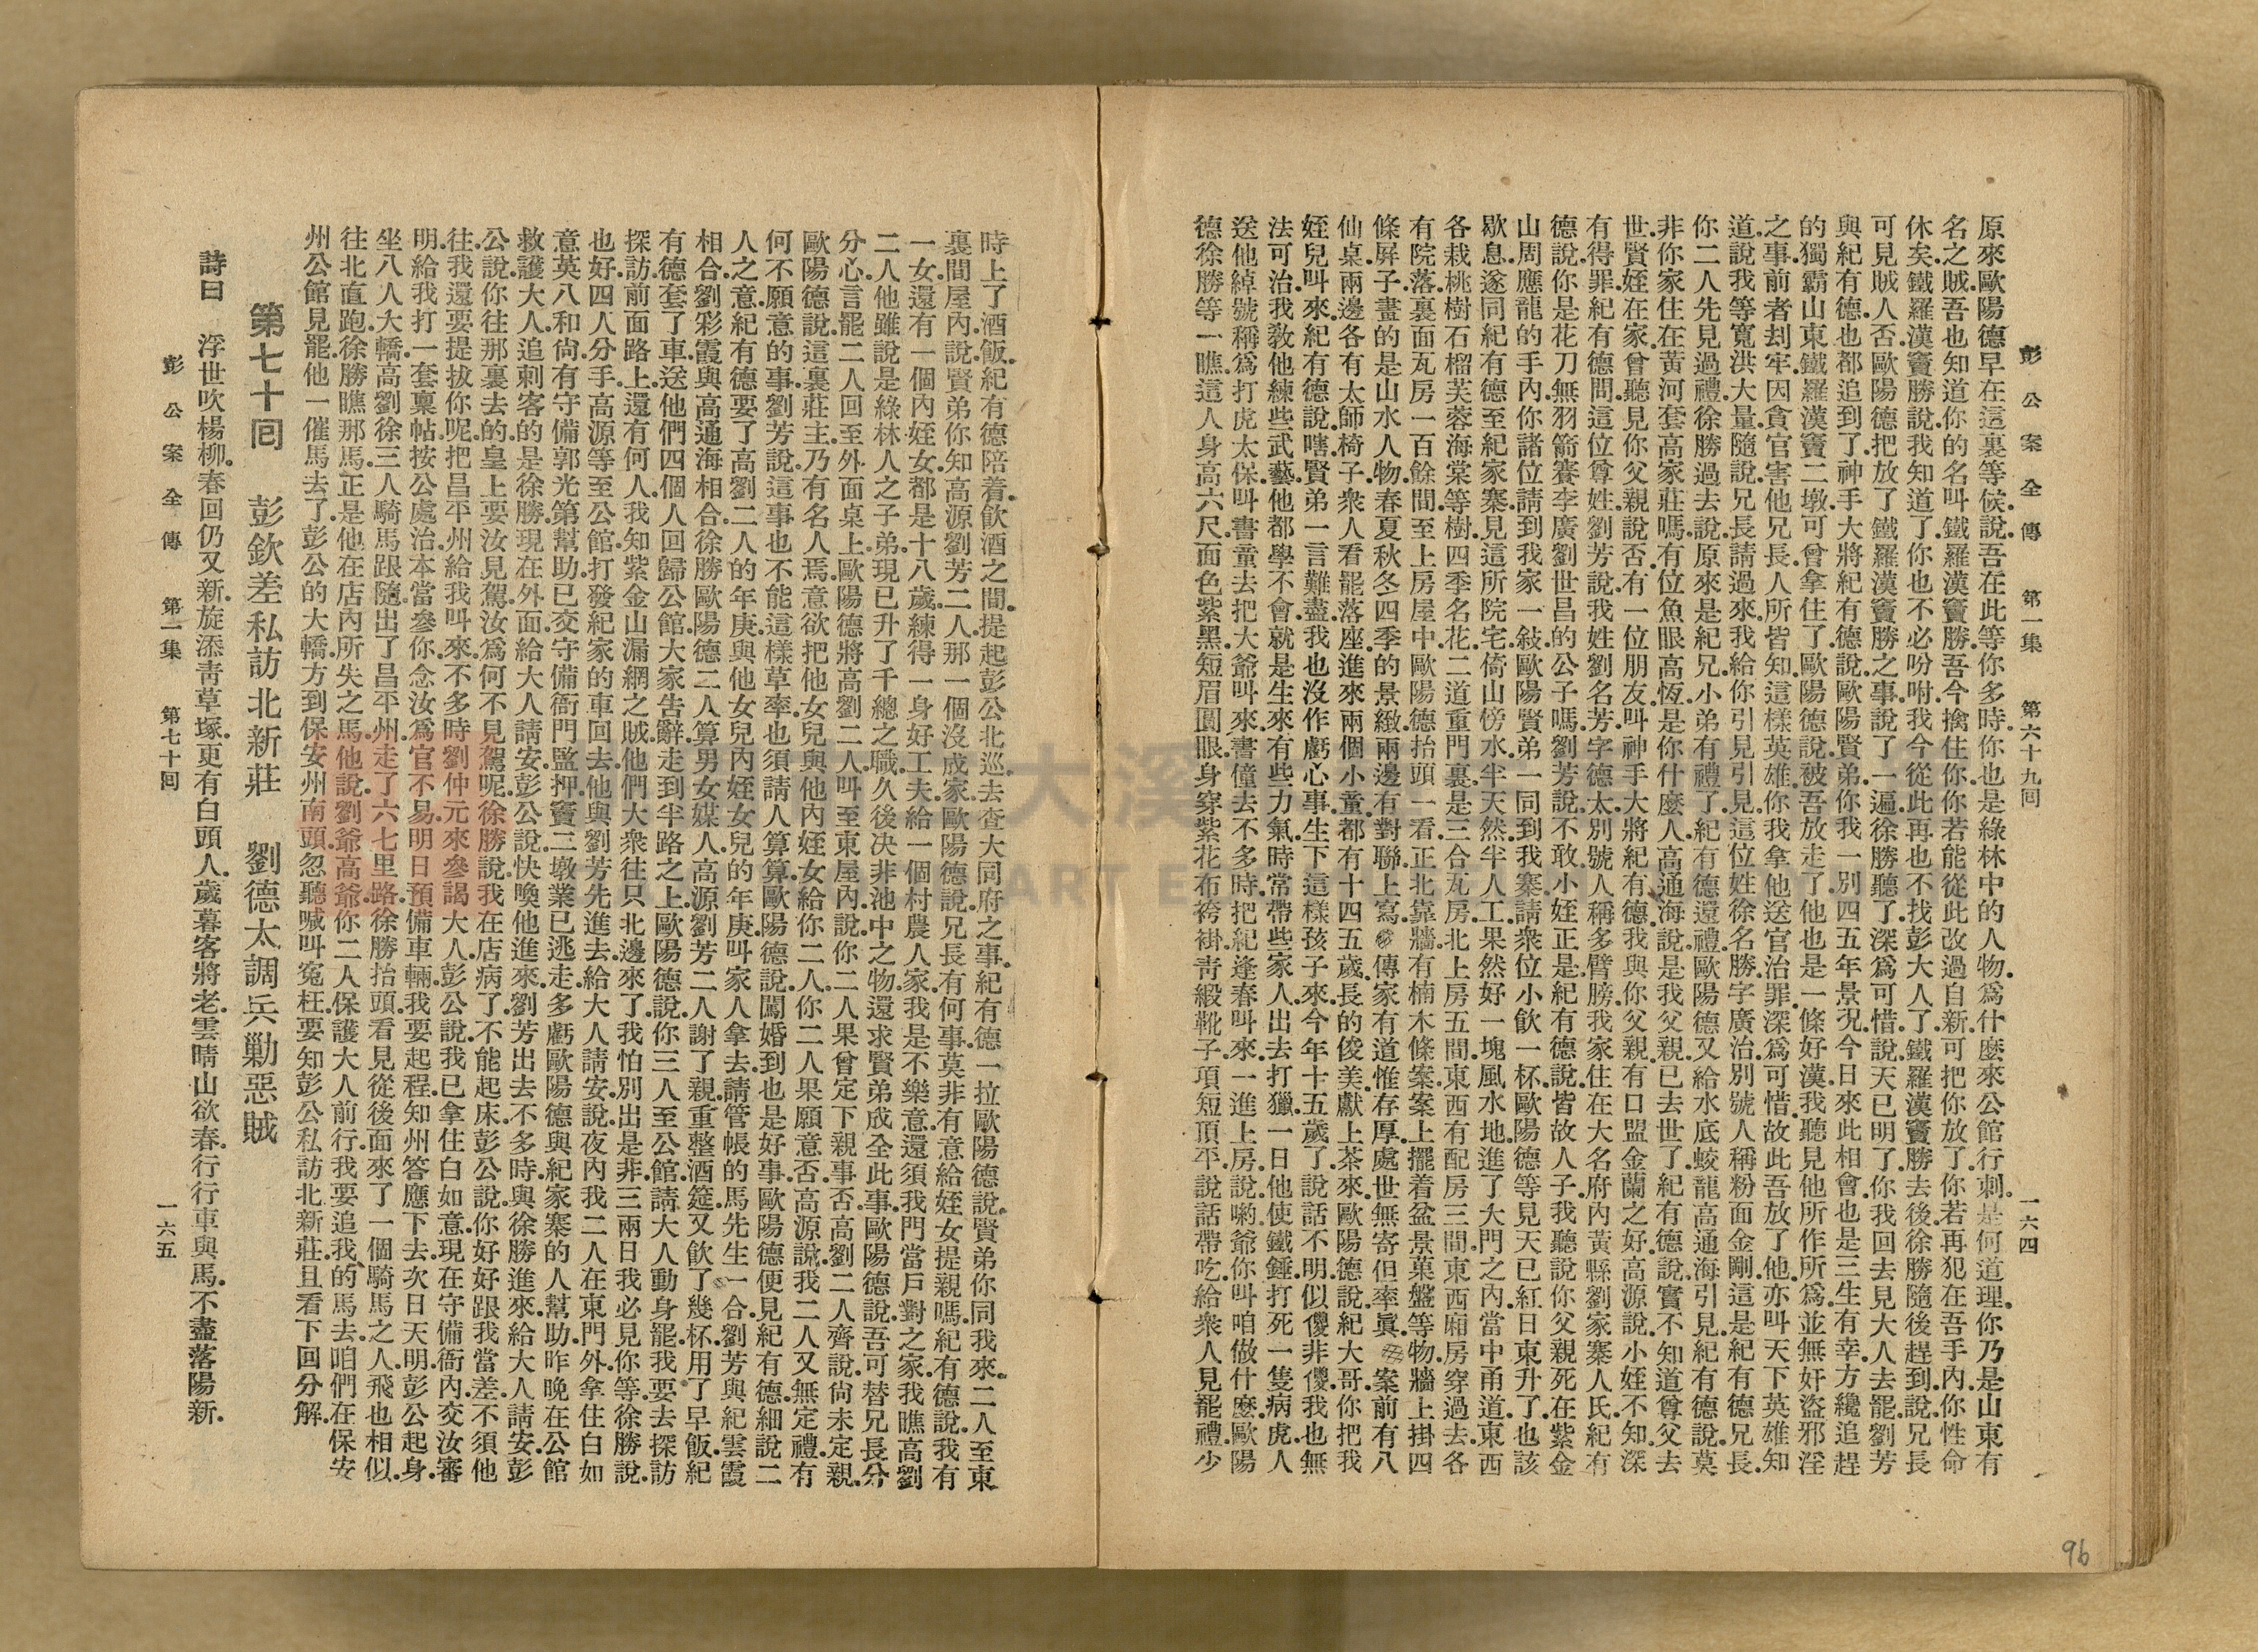 彭公案全傳 第一集 第六十九回 一六四
原來歐陽德早在這裏等候.說吾在此等你多時.你也是綠林中的人物.爲什麽來公館行刺.是何道理.你乃是山東有
名之賊.吾也知道你的名叫鐵羅漢竇勝.吾今擒住你.你若能從此改過自新.可把你放了.你若再犯在吾手內.你性命
休矣.鐵羅漢竇勝說.我知道了.你也不必吩咐.我今從此再也不找彭大人了.鐵羅漢竇勝去後.徐勝隨後趕到.說兄長
可見賊人否.歐陽德把放了鐵羅漢竇勝之事.說了一遍.徐勝聽了.深爲可惜.說天已明了.你我回去見大人去罷.劉芳
與紀有德也都追到了.神手大將紀有德說.歐陽賢弟.你我一別四五年景況.今日來此相會.也是三生有幸.方纔追趕
的獨霸山東鐵羅漢竇二墩.可曾拿住了.歐陽德說.被吾放走了.他也是一條好漢.我聽見他所作所爲.並無奸盜邪淫
之事.前者刦牢.因貪官害他兄長.人所皆知.這樣英雄.你我拿他送官治罪.深爲可惜.故此吾放了他.亦叫天下英雄知
道.說我等寬洪大量.隨說.兄長請過來.我給你引見引見.這位姓徐名勝.字廣治.別號人稱粉面金剛.這是紀有德兄長.
你二人先見過禮.徐勝過去說.原來是紀兄.小弟有禮了.紀有德還禮.歐陽德又給水底蛟龍高通海引見.紀有德說.莫
非你家住在黃河套高家莊嗎.有位魚眼高恆.是你什麽人.高通海說.是我父親.已去世了.紀有德說.實不知道尊父去
世.賢姪在家.曾聽見你父親說否.有一位朋友.叫神手大將紀有德.我與你父親有口盟金蘭之好.高源說.小姪不知.深
有得罪.紀有德問.這位尊姓.劉芳說.我姓劉名芳.字德太.別號人稱多臂膀.我家住在大名府內黃縣劉家寨人氏.紀有
德說.你是花刀無羽箭賽李廣劉世昌的公子嗎.劉芳說.不敢.小姪正是.紀有德說.皆故人子.我聽說你父親死在紫金
山周應龍的手內.你諸位請到我家一敍.歐陽賢弟一同到我寨.請衆位小飲一杯.歐陽德等見天已紅日東升了.也該
歇息.遂同紀有德至紀家寨.見這所院宅.倚山傍水.半天然半人工.果然好一塊風水地.進了大門之內.當中甬道.東西
各栽桃樹石榴芙蓉海棠等樹.四季名花.二道重門裏.是三合瓦房.北上房五間.東西有配房三間.東西廂房穿過去.各
有院落.裏面瓦房一百餘間.至上房屋中.歐陽德抬頭一看.正北靠牆.有楠木條案.案上擺着盆景菓盤等物.牆上掛四
條屏子.畫的是山水人物.春夏秋冬四季的景緻.兩邊有對聯.上寫.傳家有道惟存厚.處世無寄但率眞.案前有八
仙桌.兩邊各有太師椅子.衆人看罷落座.進來兩個小童.都有十四五歲.長的俊美.獻上茶來.歐陽德說.紀大哥.你把我
姪兒叫來.紀有德說.嗐.賢弟一言難盡.我也沒作虧心事.生下這樣孩子來.今年十五歲了.說話不明.似傻非傻.我也無
法可治.我敎他練些武藝.他都學不會.就是生來有些力氣.時常帶些家人.出去打獵.一日他使鐵錘打死一隻病虎.人
送他綽號稱爲打虎太保.叫書童去把大爺叫來.書僮去不多時.把紀逢春叫來.一進上房說.喲.爺你叫咱做什麽.歐陽
德徐勝等一瞧.這人身高六尺.面色紫黑.短眉圓眼.身穿紫花布袴褂.靑緞靴子.項短頂平.說話帶吃.給衆人見罷禮.少
時上了酒飯.紀有德陪着飲酒之間.提起彭公北巡.去查大同府之事.紀有德一拉歐陽德說.賢弟你同我來.二人至東
裏間屋內.說賢弟你知高源劉芳二人.那一個沒成家.歐陽德說.兄長有何事.莫非有意給姪女提親嗎.紀有德說.我有
一女.還有一個內姪女.都是十八歲.練得一身好工夫.給一個村農人家.我是不樂意.還須我門當戶對之家.我瞧高劉
二人.他雖說是綠林人之子弟.現已升了千總之職.久後決非池中之物.還求賢弟成全此事.歐陽德說.吾可替兄長分
分心.言罷.二人回至外面桌上.歐陽德將高劉二人叫至東屋內.說你二人果曾定下親事否.高劉二人齊說.尙未定親.
歐陽德說.這裏莊主乃有名人焉.意欲把他女兒.與他內姪女.給你二人.你二人果願意否.高源說.我二人又無定禮.有
何不願意的事.劉芳說.這事也不能這樣草率.也須請人算算.歐陽德說.闖婚到也是好事.歐陽德便見紀有德細說二
人之意.紀有德要了高劉二人的年庚.與他女兒內姪女兒的年庚.叫家人拿去.請管帳的馬先生一合.劉芳與紀雲霞
相合.劉彩霞與高通海相合.徐勝歐陽德二人算男女媒人.高源劉芳二人謝了親.重整酒筵.又飲了幾杯.用了早飯.紀
有德套了車.送他們四個人回歸公館.大家告辭.走到半路之上.歐陽德說.你三人至公館.請大人動身罷.我要去探訪
探訪.前面路上.還有何人.我知紫金山漏網之賊.他們大衆往只北邊來了.我怕別出是非.三兩日我必見你等.徐勝說.
也好.四人分手.高源等至公館.打發紀家的車回去.他與劉芳先進去.給大人請安.說夜內我二人在東門外拿住白如
意.英八和尙有守備郭光第幫助.已交守備衙門監押.竇二墩業已逃走.多虧歐陽德與紀家寨的人幫助.昨晚在公館
救護大人.追刺客的是徐勝.現在外面.給大人請安.彭公說.快喚他進來.劉芳出去不多時.與徐勝進來.給大人請安.彭
公說.你往那裏去的.皇上要汝見駕.汝爲何不見駕呢.徐勝說.我在店病了.不能起床.彭公說.你好好跟我當差.不須他
往.我還要提拔你呢.把昌平州給我叫來.不多時劉仲元來參謁大人.彭公說.我已拿住白如意.現在守備衙內.交汝審
明.給我打一套稟帖.按公處治.本當參你.念汝爲官不易.明日預備車輛.我要起程.知州答應下去.次日天明.彭公起身.
坐八人大轎.高劉徐三人騎馬跟隨.出了昌平州.走了六七里路.徐勝抬頭看見從後面來了一個騎馬之人.飛也相似.
往北直跑.徐勝瞧那馬.正是他在店內所失之馬.他說劉爺高爺.你二人保護大人前行.我要追我的馬去.咱們在保安
州公館見罷.他一催馬去了.彭公的大轎方到保安州南頭.忽聽喊叫寃枉.要知彭公私訪北新莊.且看下回分解.
第七十回 彭欽差私訪北新莊 劉德太調兵勦惡賊
詩曰 浮世吹楊柳.春回仍又新.旋添靑草塚.更有白頭人.歲暮客將老.雲晴山欲春.行行車與馬.不盡落陽新.
彭公案全傳 第一集 第七十回 一六五
96